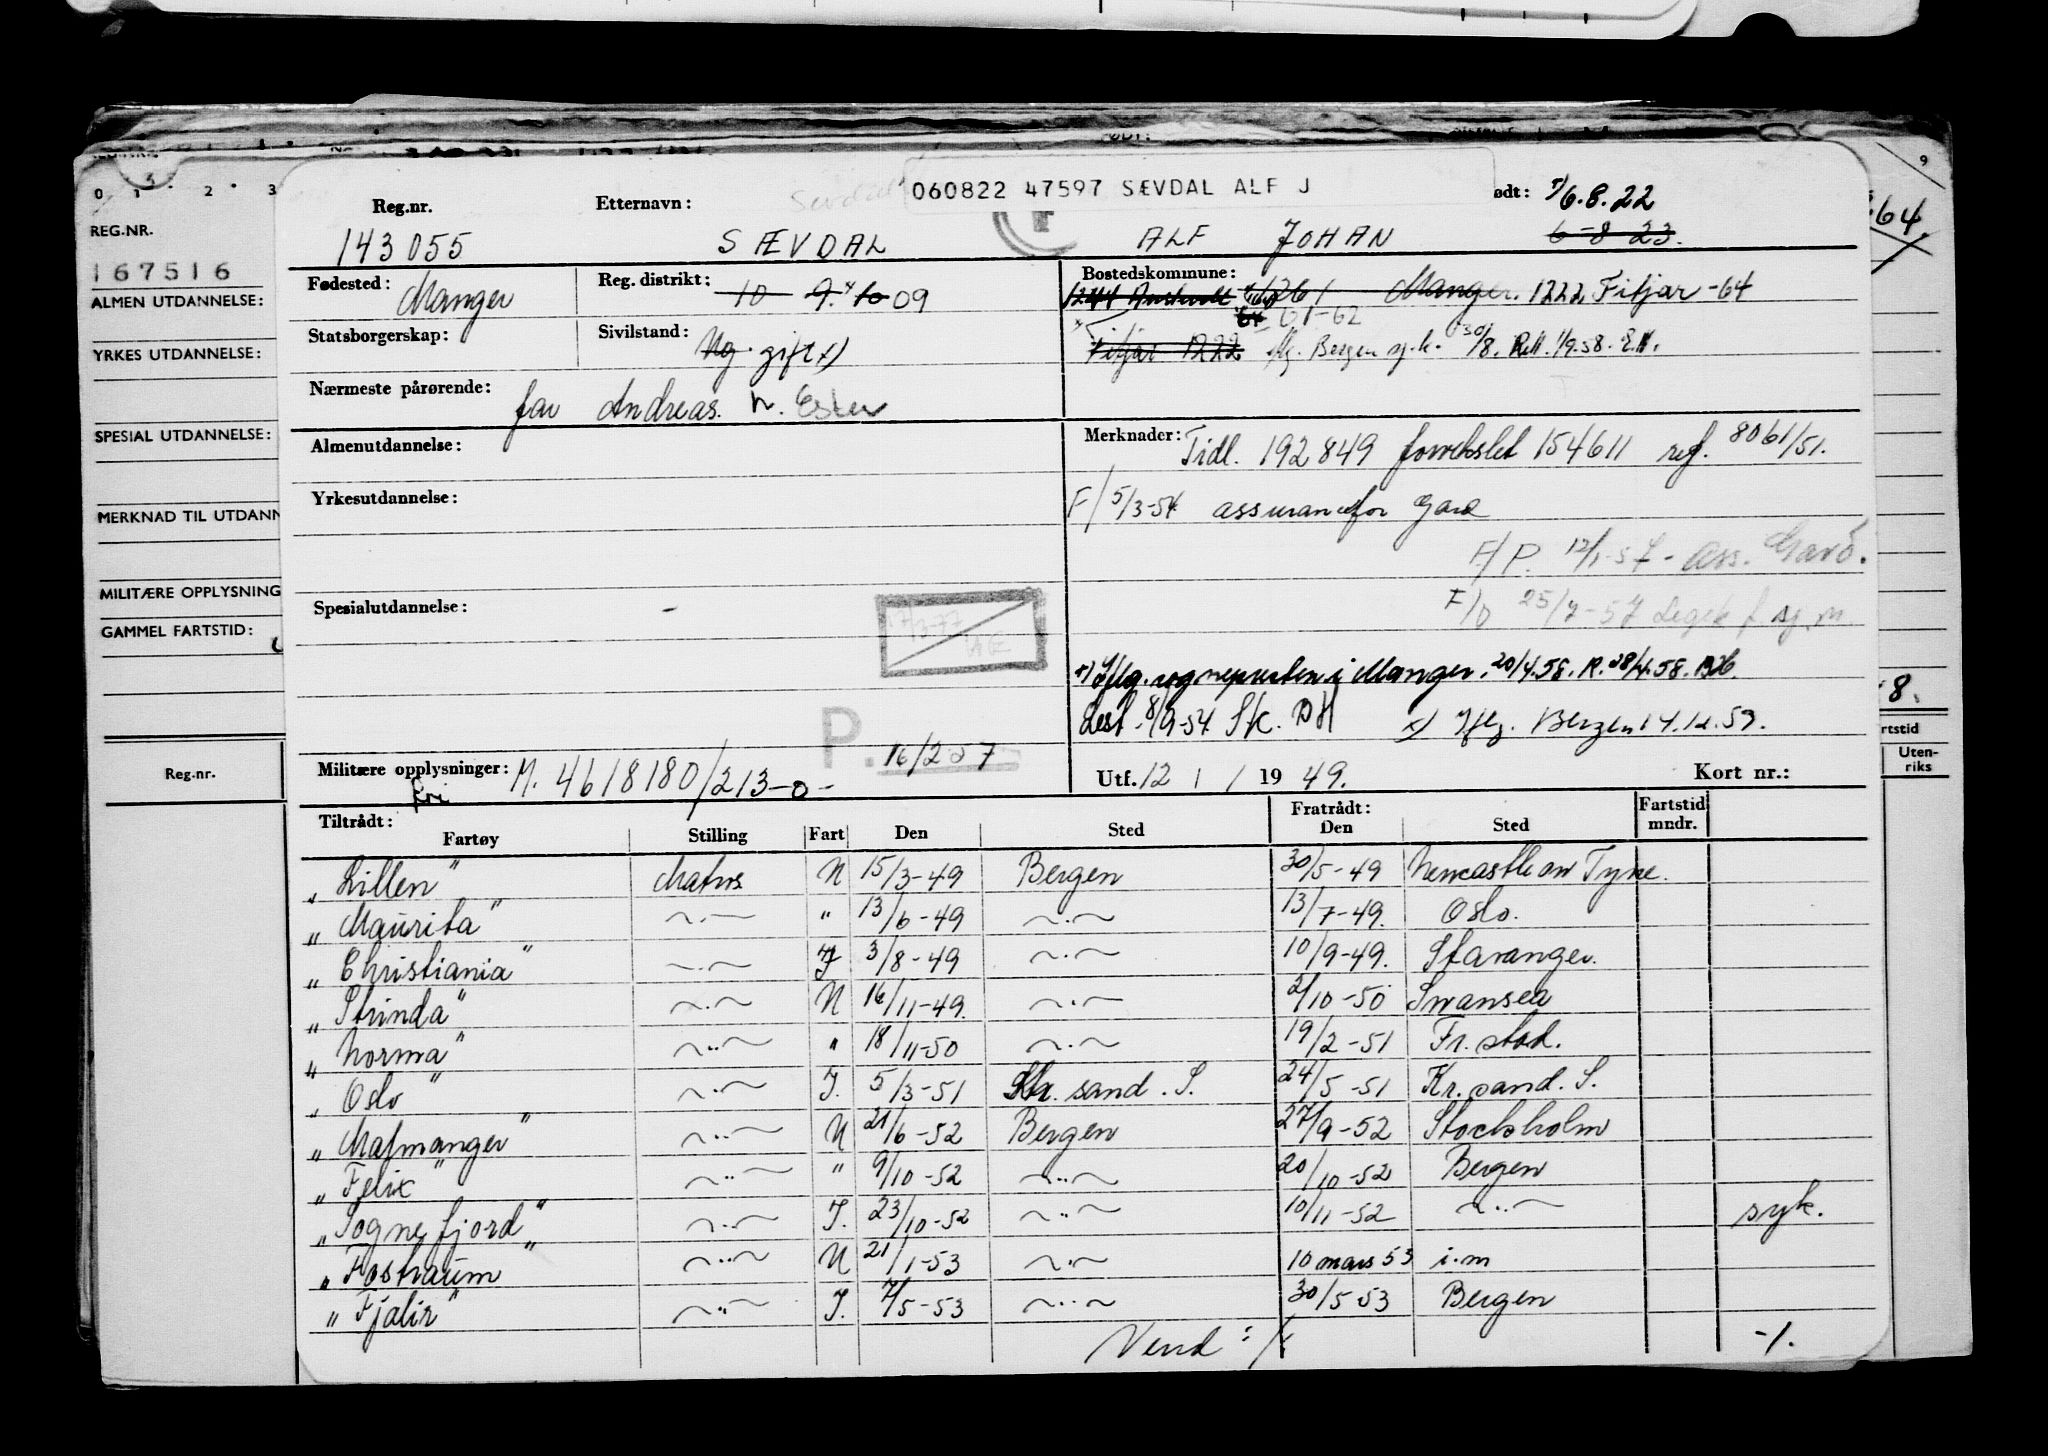 060822 47597 SÆVDAL ALF J
Reg.nr. Etternavn: ødt: 6.8.22
143055 SÆVDAL ALF JOHAN 6-8 23.
Fødested: Manger Reg. distrikt: 10 9. 10 09 Bostedskommune: 1244 1261 Manger. 1222 Fitjar -64
61-62
Statsborgerskap: Sivilstand: Ug. gift x) Fitjar 1222 Bergen 30/8. 1/9.58.
Nærmeste pårørende: far Andreas. h. Ester
Almenutdannelse: Merknader: Tidl. 192849 forvekslet 154611 ref. 8061/51.
Yrkesutdannelse: F/ 5/3-54 assuransefor Gard
F/P. 12/1-57 - Ass. Gard.
Spesialutdannelse: - F/P 25/7-57
17/3-77
Iflg. sognepresten i Manger. 20/4.58. R. 28/4.58.
Lest. 8/9-54 Sk. x) Iflg. Bergen 14.12.59.
P. 16/2 57
Militære opplysninger: M. 4618180/213-0- Utf. 12 / 1 19 49. Kort nr.:
fri
Tiltrådt: Fratrådt: Fartstid mndr.
Fartøy Stilling Fart Den Sted Den Sted
„Lillen” Matros N 15/3-49 Bergen 30/5-49 Newcastle on Tyne.
„Maurita” ~·~ " 13/6-49 ~·~ 13/7-49. Oslo.
„Christiania” ~·~ I 3/8-49 ~·~ 10/9-49. Stavanger.
„Strinda” ~·~ N 16/11-49. ~·~ 2/10-50 Swansea
„Norma” ~··~ " 18/11-50 ~·~ 19/2-51 Fr.stad.
„Oslo” ~·~ I. 5/3-51 Kr. sand. S. 24/5-51 Kr. sand. S.
„Malmanger” ~··~ N 21/6-52 Bergen 27/9-52 Stockholm
„Felix” ~··~ " 9/10-52 ~··~ 20/10-52 Bergen
„Sognefjord” ~··~ I. 23/10-52 ~··~ 10/11-52 ~··~ syk.
„Fostraum” ~··~ N 21/1-53 ~·~ 10 mars 53 i.m
„Fjalir” ~··~ I. 7/5-53 ~··~ 30/5 53 Bergen
Vend :/. -/.
0 1 2 3
REG.NR.
167516
ALMEN UTDANNELSE:
YRKES UTDANNELSE:
SPESIAL UTDANNELSE:
MERKNAD TIL UTDANN
MILITÆRE OPPLYSNING
GAMMEL FARTSTID:
Reg.nr.
9
64.
8.
rtstid
Uten-
riks